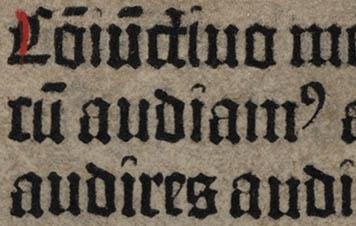 Cōiūctiuo mo
rū audiamꝰ a
audires audi